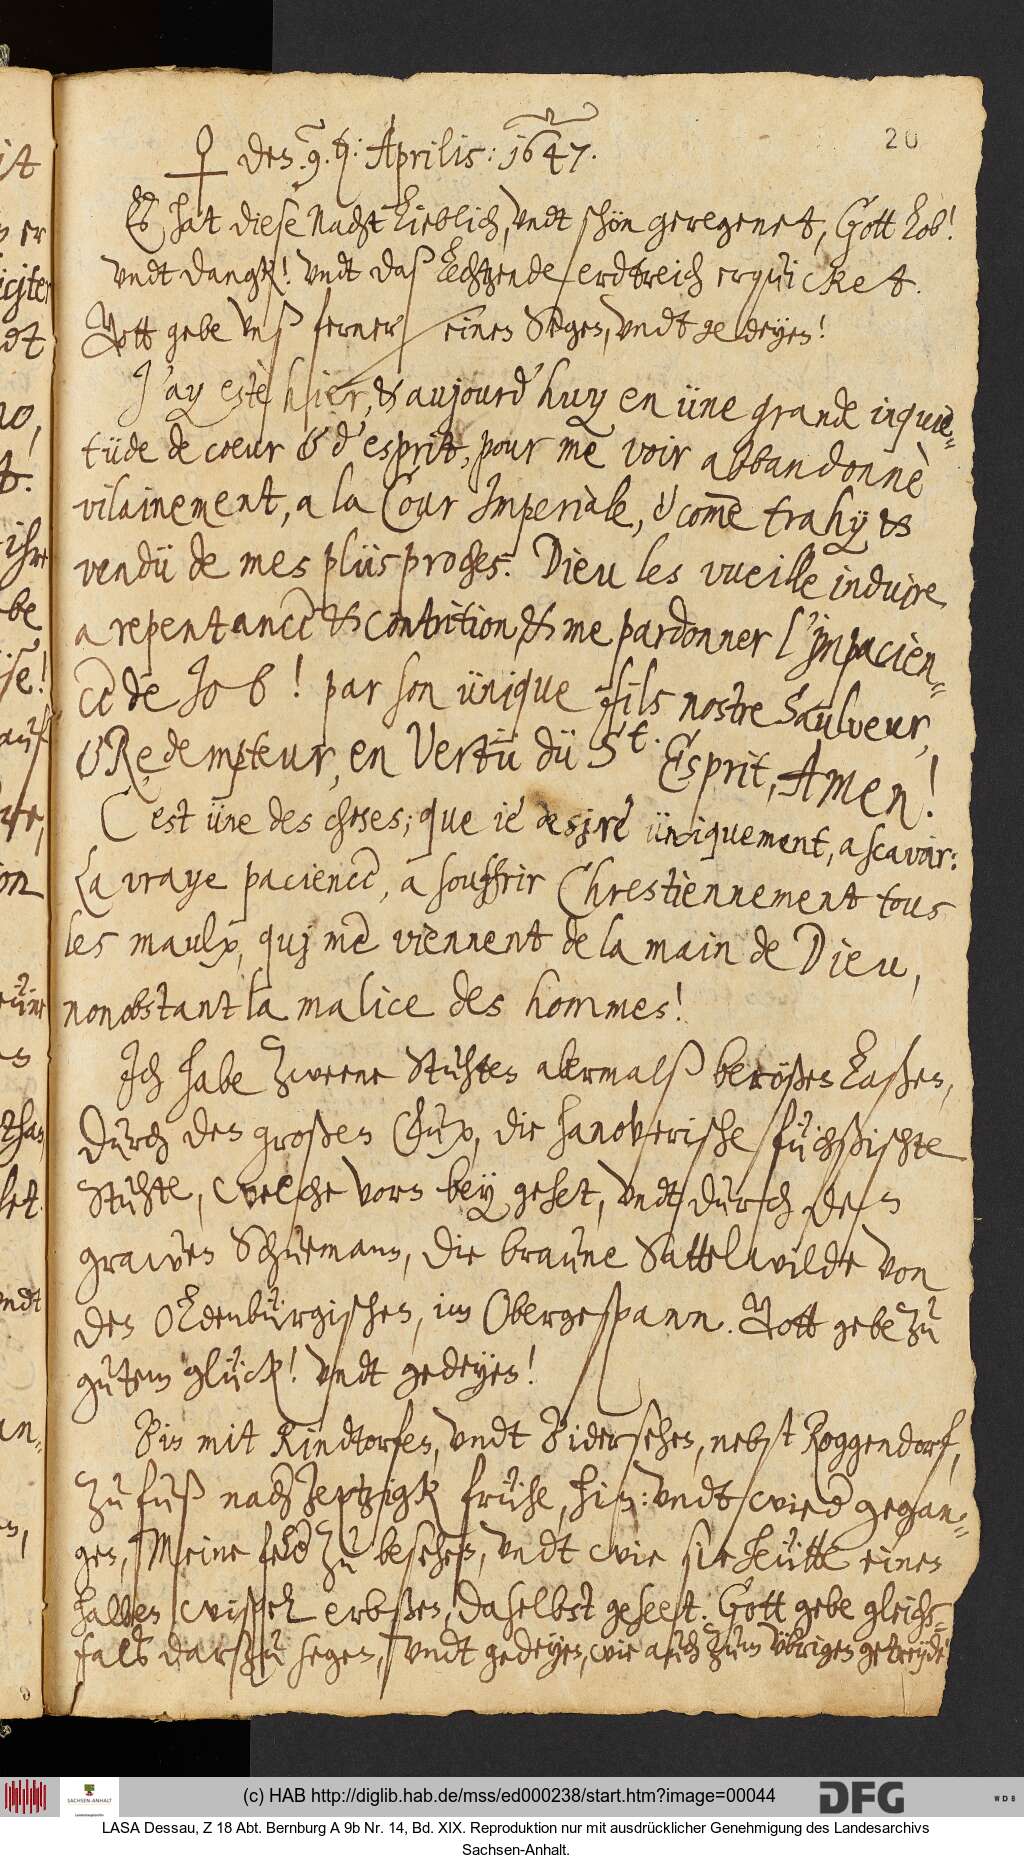 20
♀ den 9. Aprilis: 1647.
Es hat diese Nacht lieblich, vndt schön geregenet, Gott lob!
vndt dangk! vndt daß lechtzende erdtreich erquicket.
Gott gebe vnß ferner seinen Segen, vndt gedeyen!
J'ay estè hier, & aujourd'huy en üne grande inquie-
tüde de coeur & d'esprit, pour me voir abbandonnè
vilainement, a la Cour Imperiale, & come trahy &
vendü de mes plüs proches. Dieu les vueille induire
a repentance & contrition, & me pardonner l'impacien-
ce de Job! par son ünique fils nostre Saulveur,
& Redempteur, en Vertü dü St. Esprit, Amen!
C'est üne des choses; que ie desire üniquement, a scavoir:
La vraye pacience, a souffrir Chrestiennement tous
les maulx, quj me viennent de la main de Dieu,
nonobstant la malice des hommes!
Ich habe zweene Stuhten abermalß berößen laßen,
durch den großen Chur, die hanoverische füchßischte
Stuhte, welche vorn bey gehet, vndt durch den
grawen Schüemann, die braune Sattelwilde von
den Oldenburgischen, im Obergespann. Gott gebe zu
gutem glück! vndt gedeyen!
Bin mit Rindtorfen, vndt Bidersehen, nebst Roggendorf,
zu fuß nach Zeptzigk frühe, hin: vndt wied gegan-
gen, Meine feld zu besehen, vndt wie sie heütte einen
halben wispel erbßen, daselbst geseet. Gott gebe gleichs-
falß darzu segen, vndt gedeyen, wie auch zum vbrigen getreyde
(c) HAB http://diglib.hab.de/mss/ed000238/start.htm?image=00044
SACHSEN-ANHALT
DFG
WDB
LASA Dessau, Z 18 Abt. Bernburg A 9b Nr. 14, Bd. XIX. Reproduktion nur mit ausdrücklicher Genehmigung des Landesarchivs
Sachsen-Anhalt.